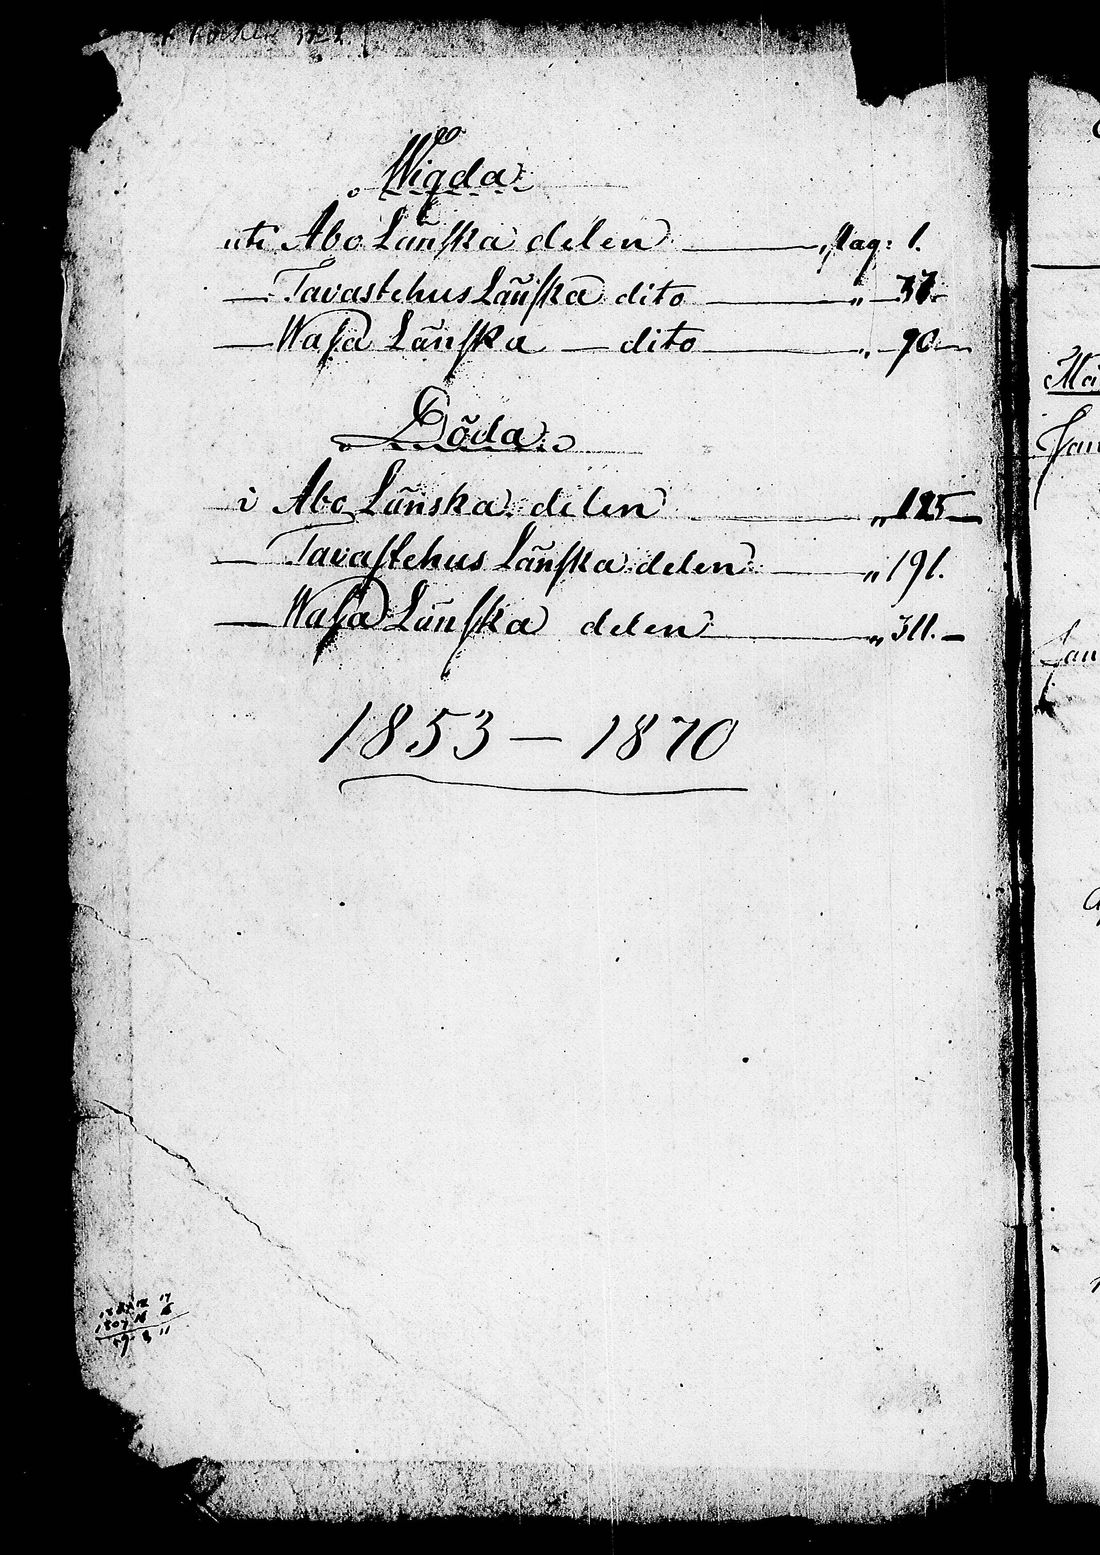 Wigda
uti Åbo Länska delen pag: 1.
Tavastehus Länska dito " 37.
Wasa Länska dito " 90.
Döda
i Åbo Länska delen " 125
Tavastehus Länska delen " 191.
Wasa Länska delen " 311.
1853 – 1870